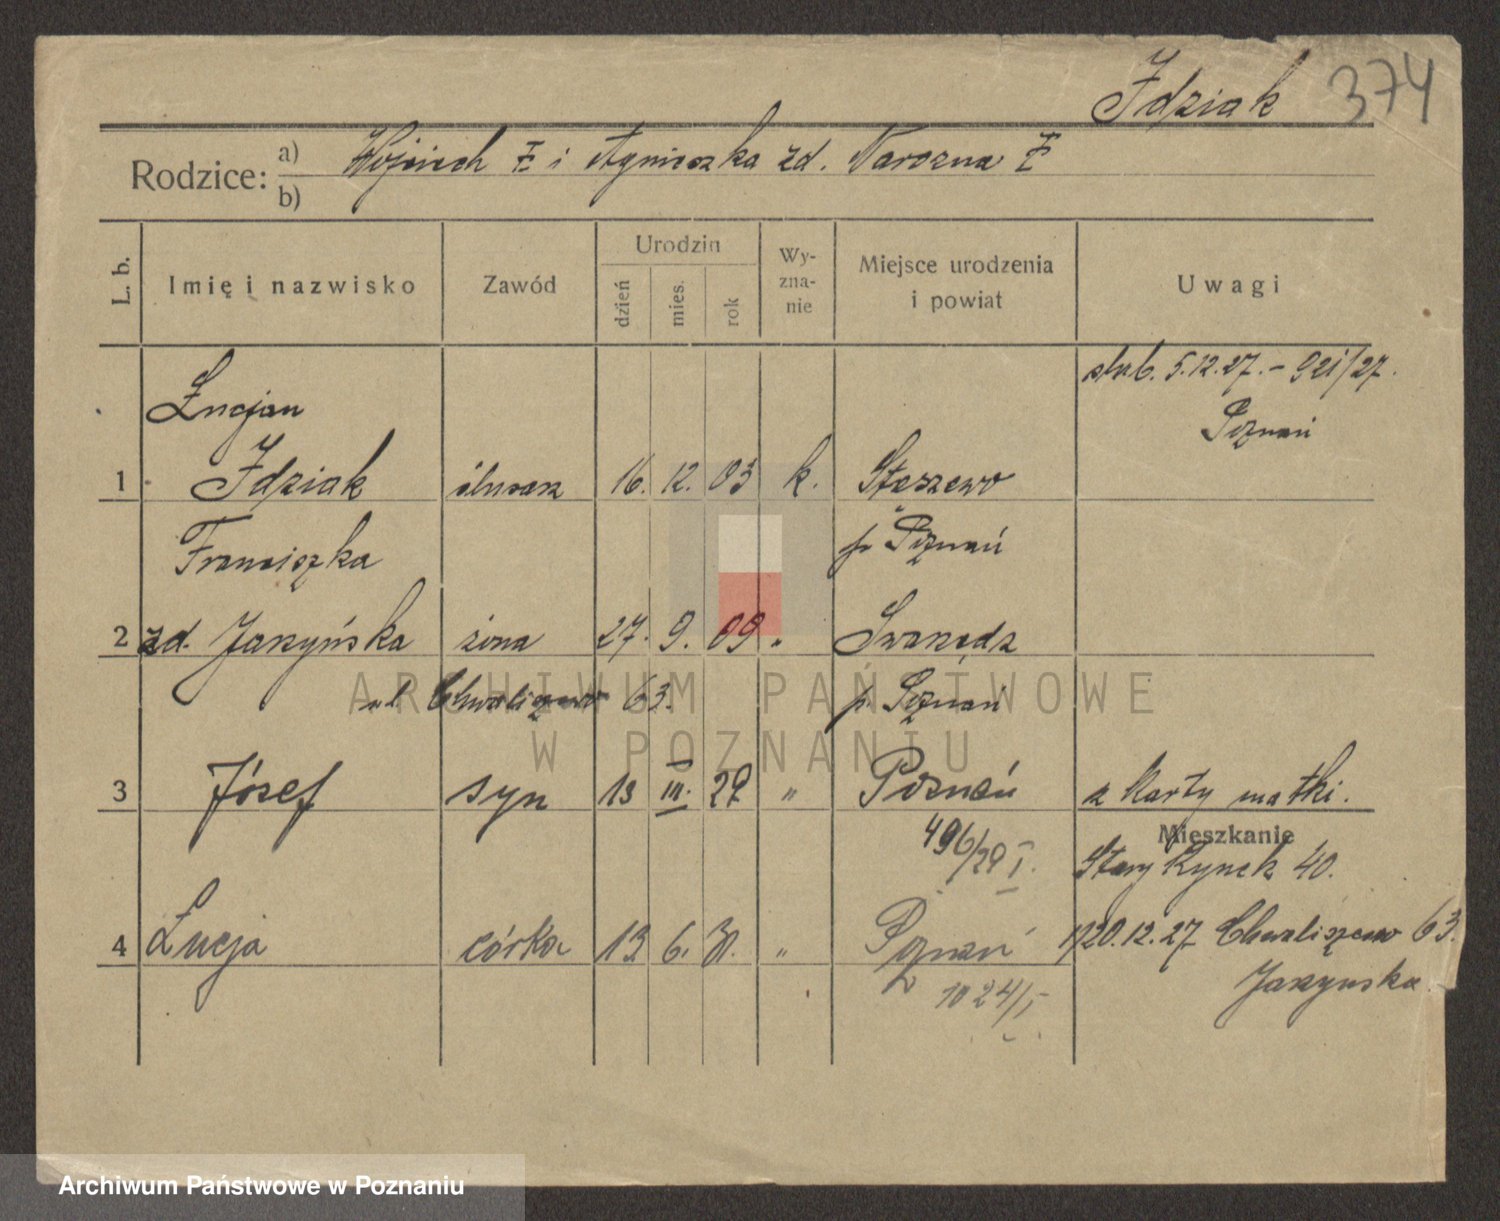 Idziak 374
Rodzice: a) Wojciech i Agnieszka zd. Narozna
b)
L. b. Imię i nazwisko Zawód Urodzin dzień mies. rok Wy-zna-nie Miejsce urodzenia i powiat Uwagi
ślub. 5.12.27. - 921/27.
Łucjan Poznań
1 Idziak ślusarz 16. 12. 03 k. Staszewo
Franciszka p. Poznań
2 zd. Jaszyńska żona 27. 9. 09 " Swarzędz
ul Chwaliszewo 63. p. Poznań
3 Józef syn 13 III. 29 " Poznań z karty matki.
Mieszkanie
496/29 I. Stary Rynek 40.
4 Łucja córka 13 6. 30. " Poznań 20.12.27 Chwaliszewo 63.
1024/I Jaszynska
ARCHIWUM PAŃSTWOWE
W POZNANIU
Archiwum Państwowe w Poznaniu